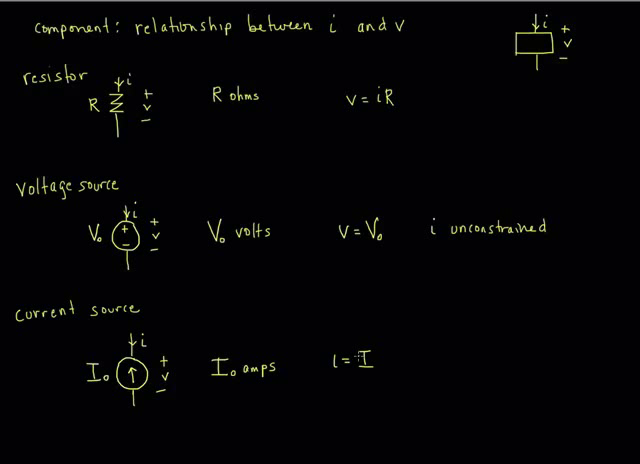 component: relationship between i and v
i + v −
resistor
R i + v − R ohms v = iR
Voltage source
V₀ i + − + v − V₀ volts v = V₀ i unconstrained
Current source
I₀ i + v − I₀ amps i = I